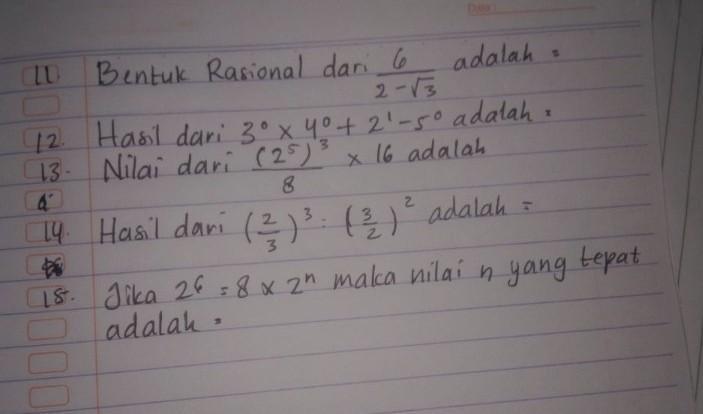 Date:
11 Bentuk Rasional dari 6/(2-√3) adalah =
12. Hasil dari 3⁰ × 4⁰ + 2¹ - 5⁰ adalah =
13. Nilai dari (2⁵)³/8 × 16 adalah
14. Hasil dari (2/3)³ : (3/2)² adalah =
15. Jika 2⁶ = 8 × 2ⁿ maka nilai n yang tepat
adalah =